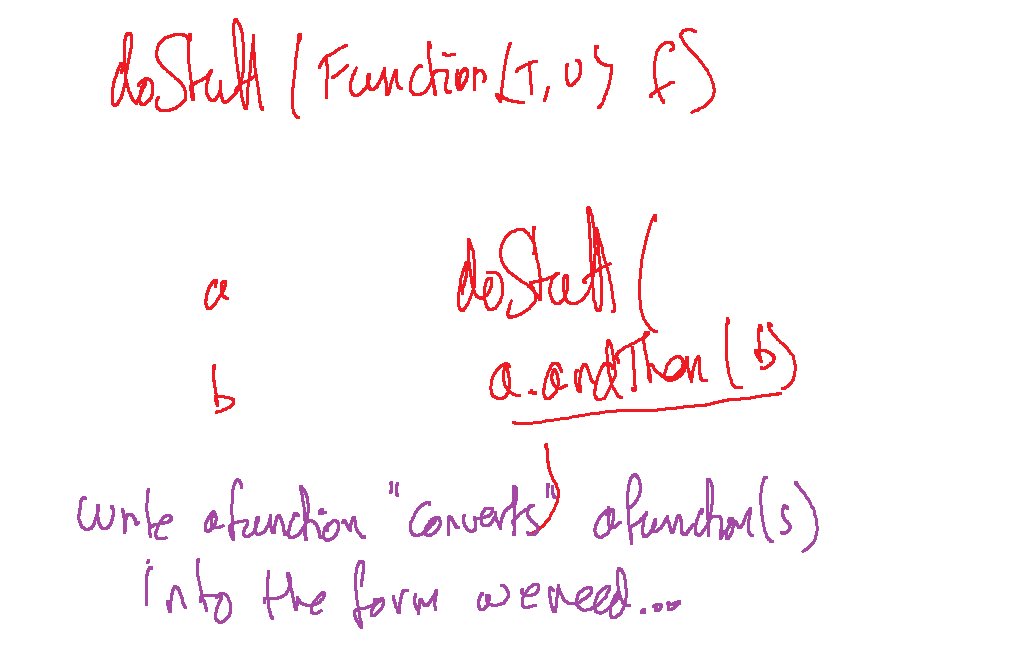 doStuff(Function<T,U> f)
a doStuff(
b a.andThen(b)
)
write a function "converts" a function(s)
into the form we need...